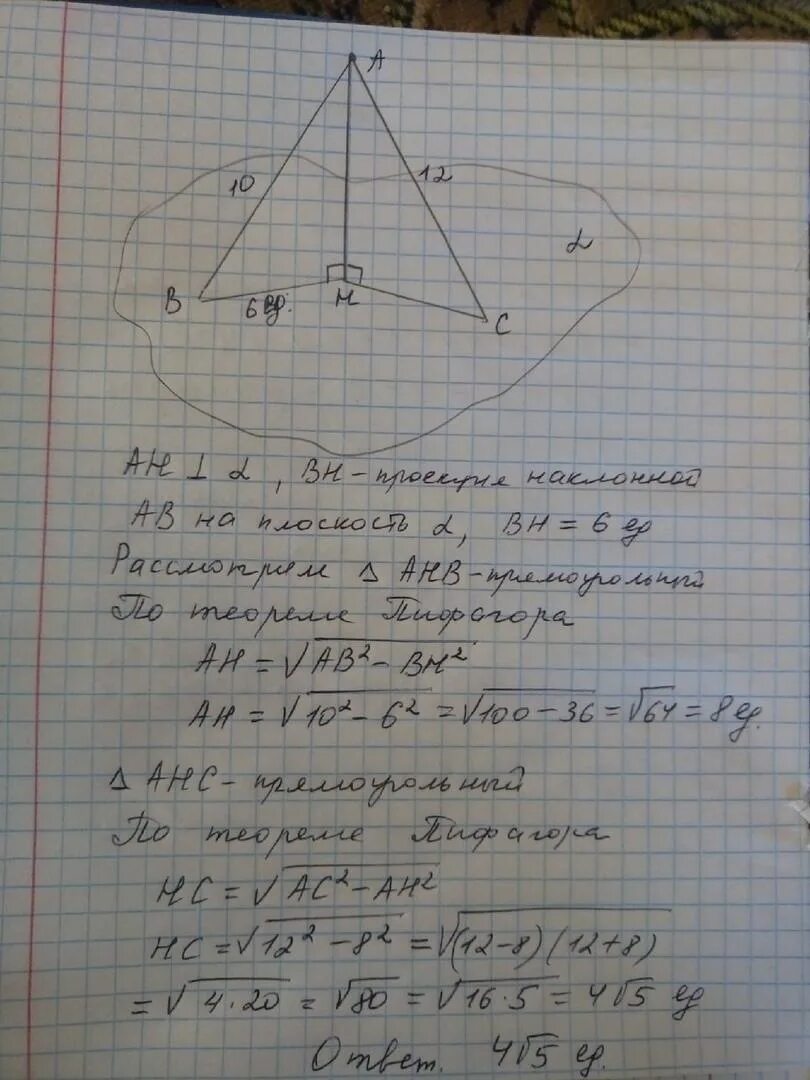 A
10
12
α
B
6 ед.
H
C
AH ⊥ α, BH - проекция наклонной
AB на плоскость α, BH = 6 ед
Рассмотрим △ AHB - прямоугольный
По теореме Пифагора
AH = √(AB² - BH²)
AH = √(10² - 6²) = √(100 - 36) = √64 = 8 ед.
△ AHC - прямоугольный
По теореме Пифагора
HC = √(AC² - AH²)
HC = √(12² - 8²) = √((12-8)(12+8))
= √(4·20) = √80 = √(16·5) = 4√5 ед
Ответ. 4√5 ед.